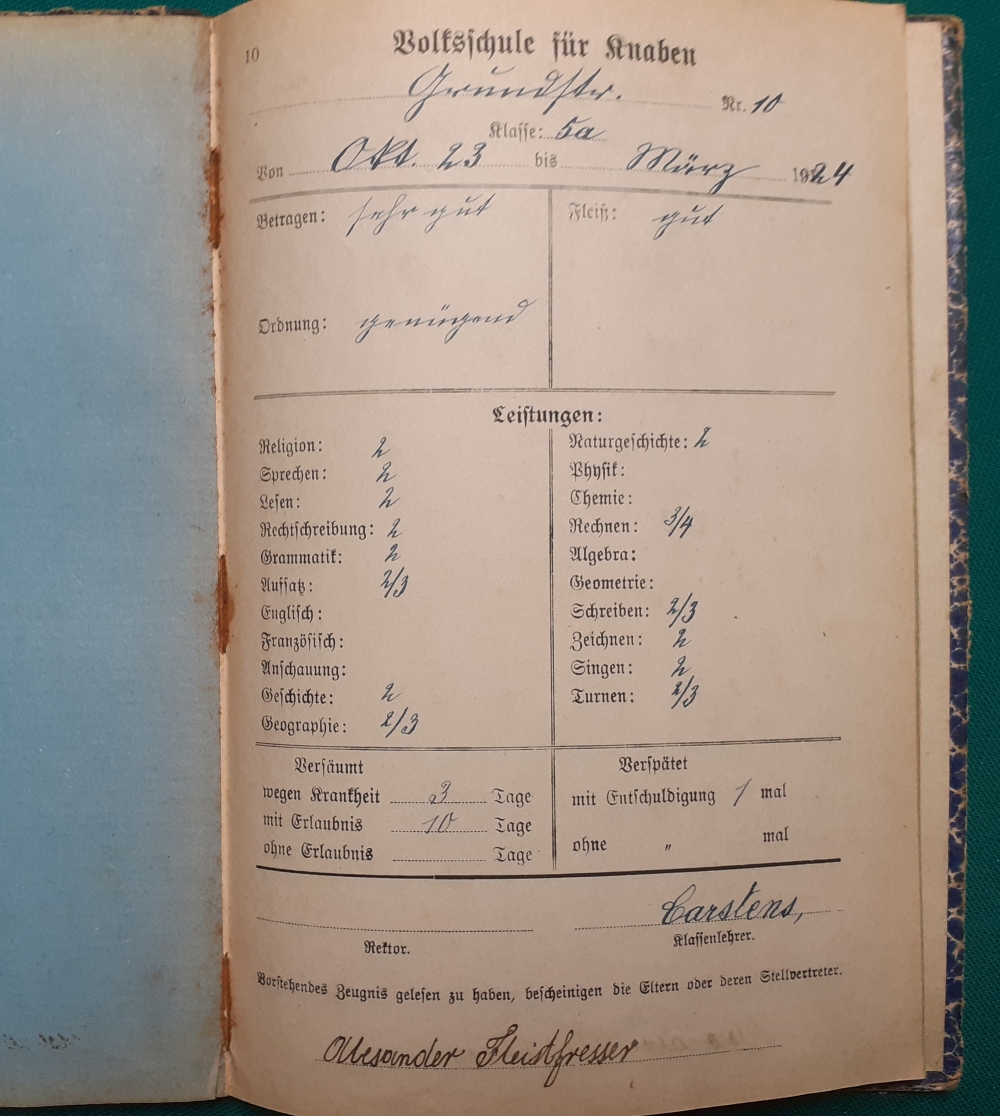 10
Volksschule für Knaben
Grundstr. Nr. 10
Klasse: 5a
Von Okt. 23 bis März 1924
Betragen: sehr gut
Fleiß: gut
Ordnung: genügend
Leistungen:
Religion: 2
Sprechen: 2
Lesen: 2
Rechtschreibung: 2
Grammatik: 2
Aufsatz: 2/3
Englisch:
Französisch:
Anschauung:
Geschichte: 2
Geographie: 2/3
Naturgeschichte: 2
Physik:
Chemie:
Rechnen: 3/4
Algebra:
Geometrie:
Schreiben: 2/3
Zeichnen: 2
Singen: 2
Turnen: 2/3
Versäumt
wegen Krankheit 3 Tage
mit Erlaubnis 10 Tage
ohne Erlaubnis Tage
Verspätet
mit Entschuldigung 1 mal
ohne " mal
Carstens,
Rektor.
Klassenlehrer.
Vorstehendes Zeugnis gelesen zu haben, bescheinigen die Eltern oder deren Stellvertreter.